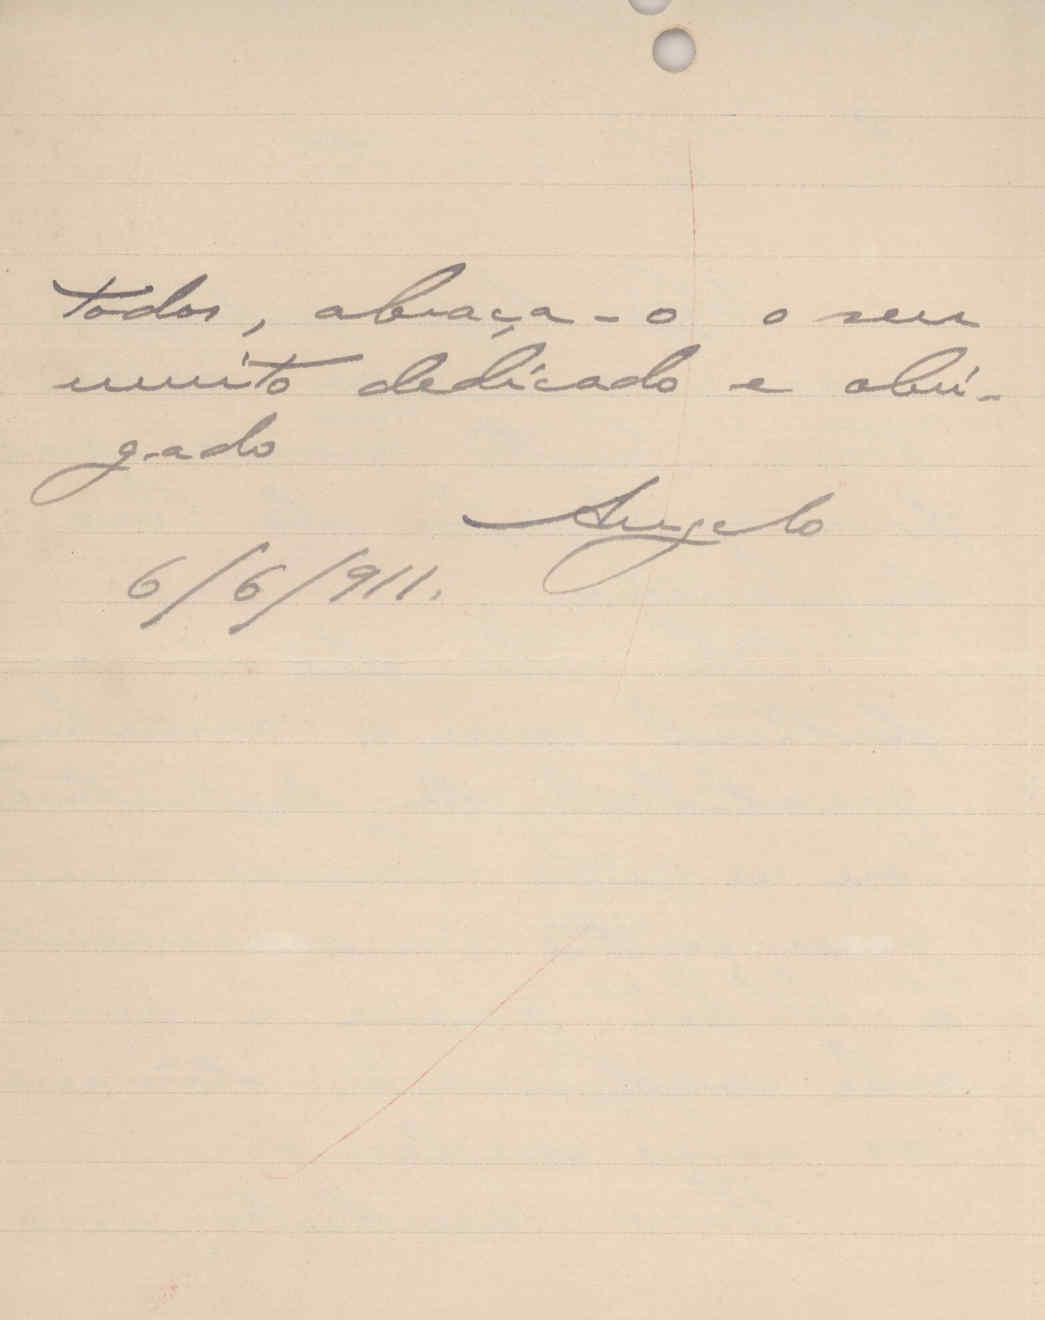 todos, abraça-o o seu
muito dedicado e obri-
gado
Angelo
6/6/911.